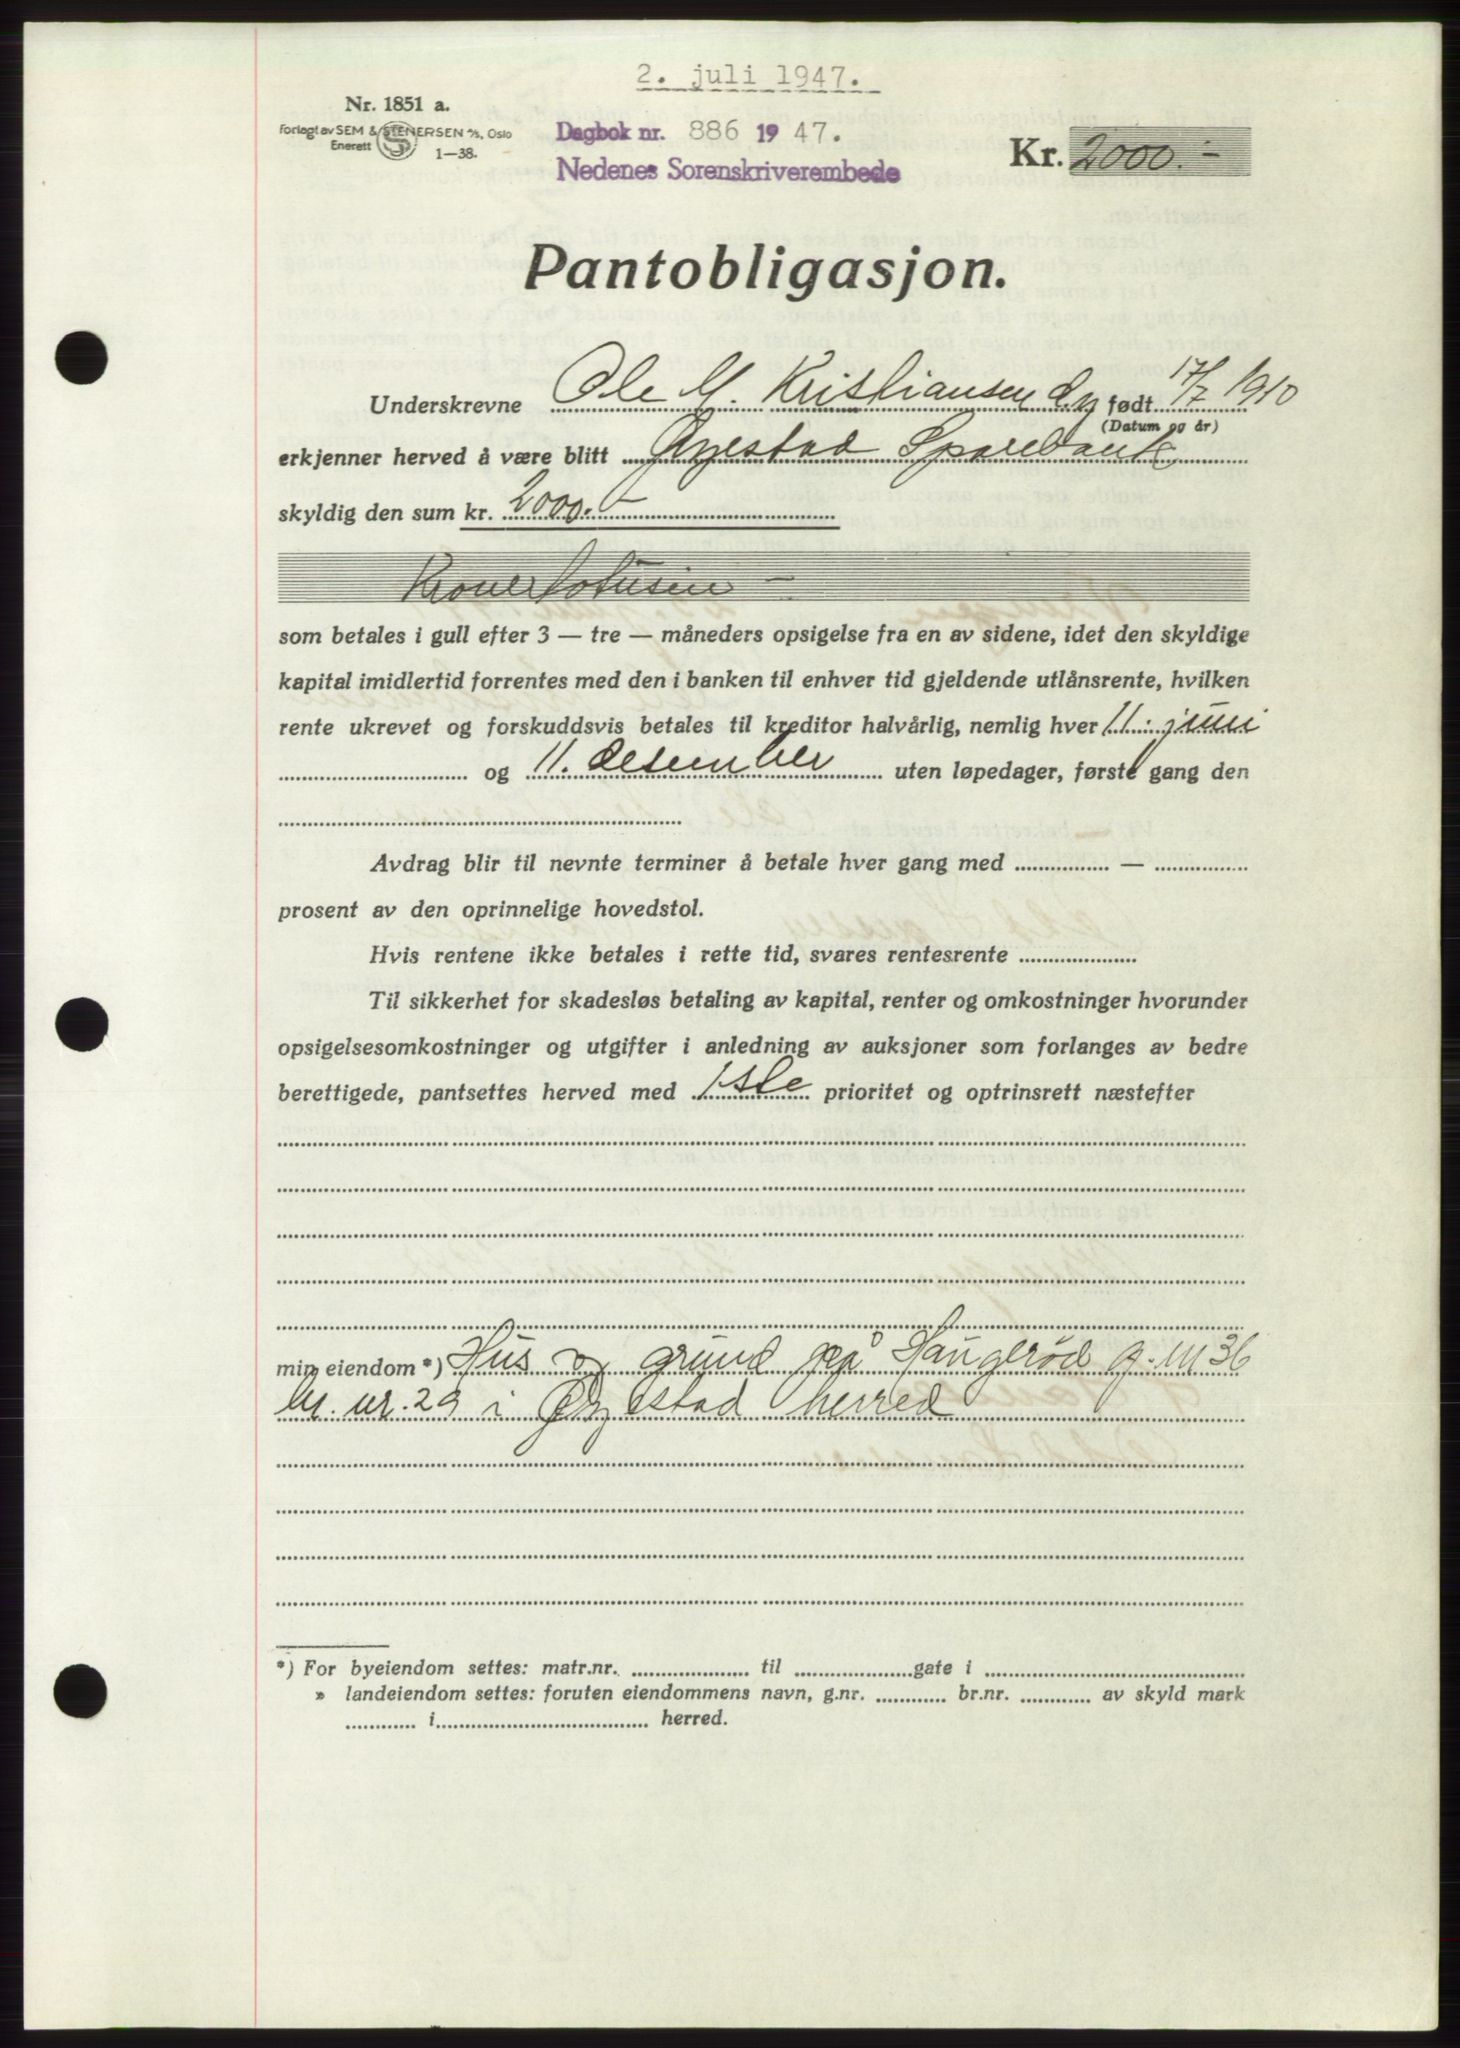 2. juli 1947.
Nr. 1851 a.
Forlagt av SEM & STENERSEN A/S, Oslo
Enerett 1—38.
Dagbok nr. 886 1947.
Nedenes Sorenskriverembede
Kr. 2000.-
Pantobligasjon.
Underskrevne Ole M. Kristiansen d.y. født 17/7 1910
(Datum og år)
erkjenner herved å være blitt Øyestad Sparebank
skyldig den sum kr. 2000.-
Kroner totusen -
som betales i gull efter 3 — tre — måneders opsigelse fra en av sidene, idet den skyldige
kapital imidlertid forrentes med den i banken til enhver tid gjeldende utlånsrente, hvilken
rente ukrevet og forskuddsvis betales til kreditor halvårlig, nemlig hver 11. juni
og 11. desember uten løpedager, første gang den
Avdrag blir til nevnte terminer å betale hver gang med —
prosent av den oprinnelige hovedstol.
Hvis rentene ikke betales i rette tid, svares rentesrente
Til sikkerhet for skadesløs betaling av kapital, renter og omkostninger hvorunder
opsigelsesomkostninger og utgifter i anledning av auksjoner som forlanges av bedre
berettigede, pantsettes herved med 1ste prioritet og optrinsrett næstefter
min eiendom *) Hus og grund på Haugerød g. nr 36
br. nr. 29 i Øyestad herred
*) For byeiendom settes: matr.nr. til gate i
» landeiendom settes: foruten eiendommens navn, g.nr. br.nr. av skyld mark
i herred.